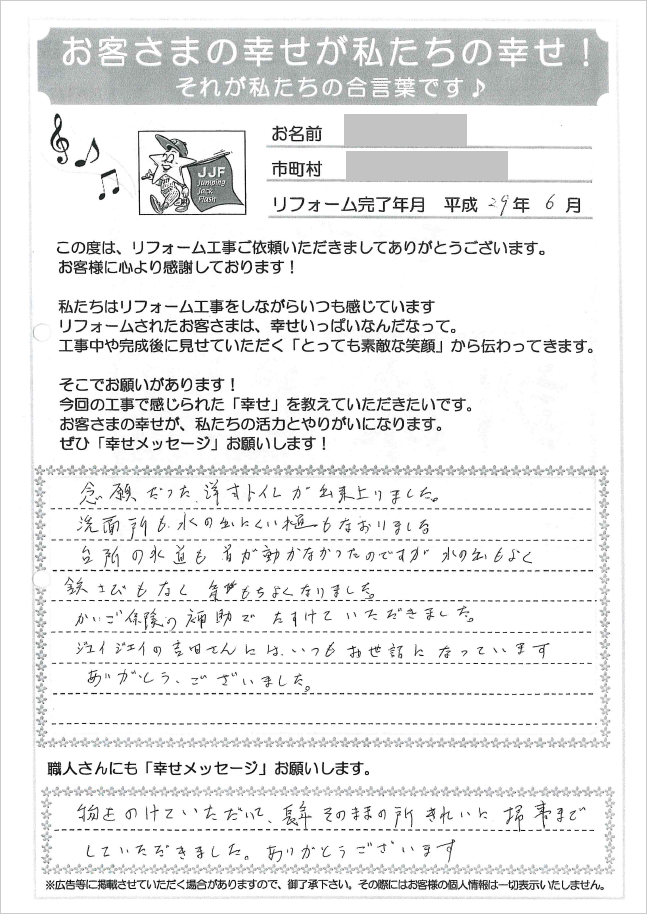 お客さまの幸せが私たちの幸せ！
それが私たちの合言葉です♪
JJF
Jumping
Jack
Flash
お名前
市町村
リフォーム完了年月　平成29年6月
この度は、リフォーム工事ご依頼いただきましてありがとうございます。
お客様に心より感謝しております！
私たちはリフォーム工事をしながらいつも感じています
リフォームされたお客さまは、幸せいっぱいなんだなって。
工事中や完成後に見せていただく「とっても素敵な笑顔」から伝わってきます。
そこでお願いがあります！
今回の工事で感じられた「幸せ」を教えていただきたいです。
お客さまの幸せが、私たちの活力とやりがいになります。
ぜひ「幸せメッセージ」お願いします！
念願だった、洋式トイレが出来上りました。
洗面所も水の出にくい もなおりました
台所の水道も首が動かなかったのですが水の出もよく
鉄さびもなく気もちよくなりました。
かいご保険の補助でたすけていただきました。
ジェイジェイの吉田さんには、いつもお世話になっています
ありがとうございました。
職人さんにも「幸せメッセージ」お願いします。
物をのけていただいて、長年そのままの所きれいに掃事まで
していただきました。ありがとうございます
※広告等に掲載させていただく場合がありますので、御了承下さい。その際にはお客様の個人情報は一切表示いたしません。